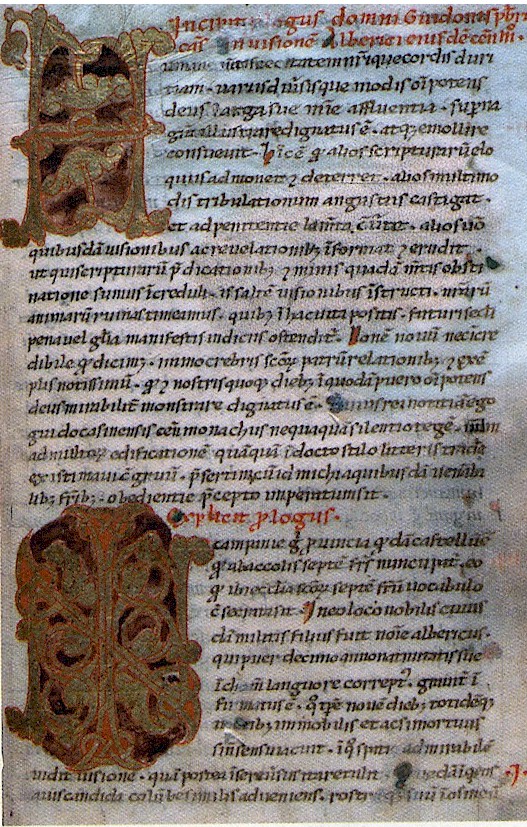 Incipit plogus domni Guidonis pbri
casin in visionē Alberici eiusdē cenobii.
umanā ītatis ecitatem nrique cordis duri
tiam. variis diuisque modis oīpotens
deus larga sue mīe affluentia. supna
grā illustrare dignatus ē. atqz emollire
consueuit. hīc ē qd alios scripturarū elo
quiis admonet & deterret. alios multimo
dis tribulationum angustiis castigat.
et ad penitentie lamta ītat. alios uō
quibusdā uisionibus ac reuelationibz īformat & erudit
ut qui scripturarū pdicationibz & minis quadā mtis obsti
natione sumus īcreduli. his saltē uisionibus īstructi. nrarū
animarū ruinas timeamus. quibz ī hac uita positis. futuri sedi
pena uel glia manifestis indiciis ostendit. Nonē nouū nec īcre
dibile qd dicimz. immo crebris scōrz patrū relationibz & exē
plis notissimū. qd & nostris quoqz diebz ī quodā puero oīpotens
deus mirabilit monstrare dignatus ē. Cuius rei notitiā ego
guido casinensis cenobii monachus nequaquā silentio tegē.
ad multorz edificationē quāquā īdocto stilo litteris tradē
existimaui cgruū. psertim cū id michi a quibusdā uenabi
libz frībz. obedientie pcepto imperatum sit.
Explicit plogus.
campanie g puincia qdā castellū ē
qd a bcolis septē frs nuncupat. eo
qd ibi ecclia scōrz septē frū uocabulo
csecrata sit. In eo loco nobilis cuius
dā militis filius fuit noīe albericus.
qui puer decimo anno natiuitatis sue
īchoato languore correpti. grauit ī
firmatus ē. qo tpe nouē diebz totidēqz
noctibz immobilis et ac si mortuus
sine sensu iacuit. ī qo spatio admirabilē
uidit uisionē. quā postea ī se reuersus ita retulit.
auis candida colūbe similis adueniens. rostrū suū ī os meū